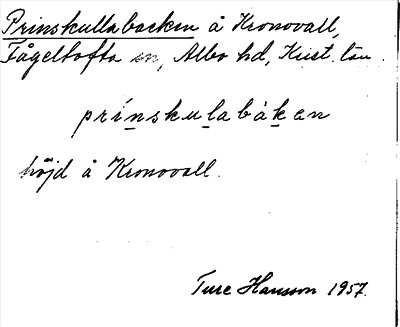 Prinskullabacken å Kronovall,
Fågeltofta sn, Albo hd, Krist. län.
prínskulabákan
höjd å Kronovall.
Ture Hansson 1957.